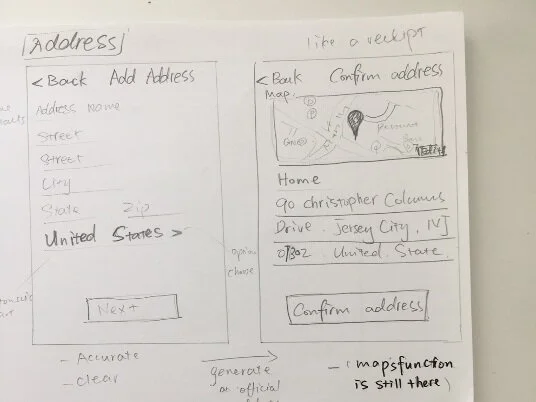 Address
like a receipt
< Back Add Address
Address Name
Street
Street
City
State Zip
United States >
Next
- Accurate
- clear
option
generate
official
< Back Confirm address
Map:
Home
90 christopher Columus
Drive. Jersey City, NJ
07302 United. State.
Confirm address
- ( map's function
is still there )